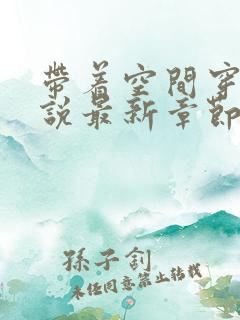 帶着空間穿
說最新章節
孫子釗
未經同意禁止轉載